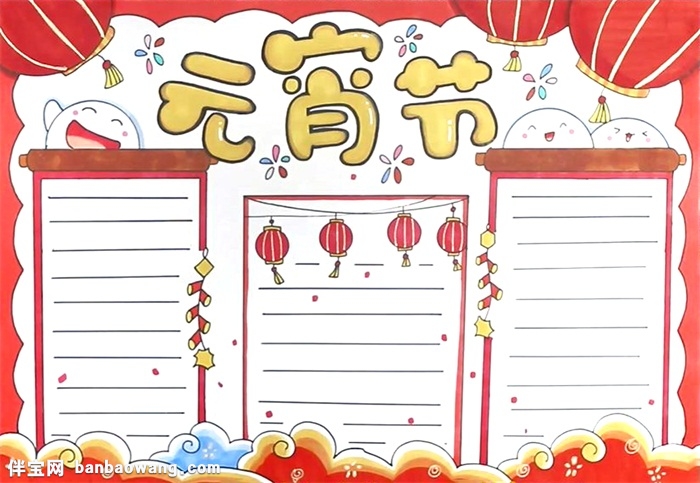 元宵节
伴宝网 banbaowang.com